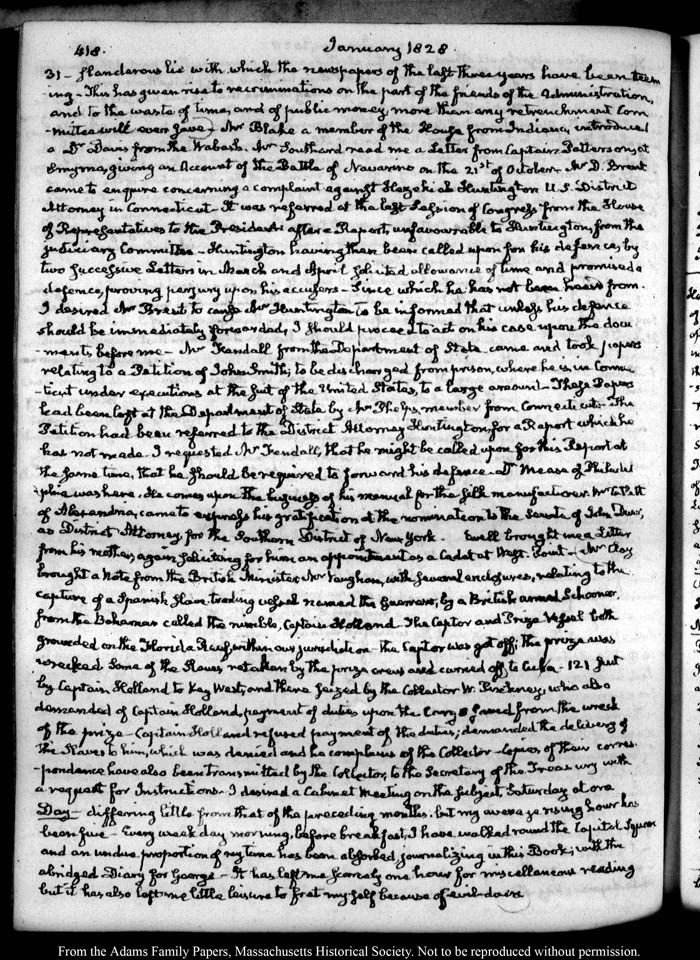 418.
January 1828.
31 – slanderous lie with which the newspapers of the last three years have been teem
ing – This has given rise to recriminations on the part of the friends of the Administration,
and to the waste of time, and of public money, more than any retrenchment Com
-mittee will ever save – Mr Blake a member of the House from Indiana, introduced
a Dr Davis from the Wabash. Mr Southard read me a Letter from Captain Patterson, at
Smyrna, giving an Account of the Battle of Navarino on the 21st of October – Mr D. Brent
came to enquire concerning a complaint against Hezekiah Huntington U.S. District
Attorney in Connecticut – It was referred at the last Session of Congress from the House
of Representatives to the President after a Report, unfavourable to Huntington, from the
Judiciary Committee – Huntington having then been called upon for his defence, by
two successive Letters in March and April solicited allowance of time and promised a
defence, proving perjury upon his accusers – Since which he has not been heard from.
I desired Mr Brent to cause Mr Huntington to be informed that unless his defence
should be immediately forwarded, I should proceed to act on his case upon the docu
-ments before me – Mr Kendall from the Department of State came and took papers
relating to a Petition of John Smith; to be discharged from prison, where he is in Connec
-ticut under executions at the suit of the United States, to a large amount – These Papers
had been left at the Department of State by Mr Phelps, member from Connecticut – The
Petition had been referred to the District Attorney Huntington, for a Report which he
has not made – I requested Mr Kendall, that he might be called upon for this Report at
the same time, that he should be required to forward his defence – Dr Mease of Philadel
-phia was here. He comes upon the business of his manual for the silk manufacture. Mr
of Alexandria, came to express his gratification at the nomination to the Senate of John Duer,
as District Attorney, for the Southern District of New York. – Ewell brought me a Letter
from his mother, again soliciting for him an appointment as a Cadet at West-Point – Mr Clay
brought a Note from the British Minister Mr Vaughan, with several enclosures, relating to the
capture of a Spanish Slave trading vessel named the Guerrero, by a British armed Schooner,
from the Bahamas called the nimble, Captain Holland – The Captor and Prize Vessel both
grounded on the Florida Reef, within our jurisdiction – the Captor was got off; the prize was
wrecked some of the Slaves retaken by the prize crew and carried off to Cuba – 121 sent
by Captain Holland to Key West; and there seized by the Collector W. Pinckney; who also
demanded of Captain Holland, payment of duties upon the Cargo saved from the wreck
of the prize – Captain Holland refused payment of the duties; demanded the delivery of
the Slaves to him, which was denied and he complains of the Collector – Copies of their corres-
-pondence have also been transmitted by the Collector, to the Secretary of the Treasury with
a request for Instructions – I desired a Cabinet Meeting on the subject Saturday at one
Day – differing little from that of the preceding months. but my average rising hour has
been five – Every week day morning, before breakfast, I have walked round the Capitol Square
and an undue proportion of my time has been absorbed journalizing in this Book; with the
abridged Diary for George – It has left me scarcely one hour for miscellaneous reading
but it has also left me little leisure to fret myself because of evil-doers
From the Adams Family Papers, Massachusetts Historical Society. Not to be reproduced without permission.